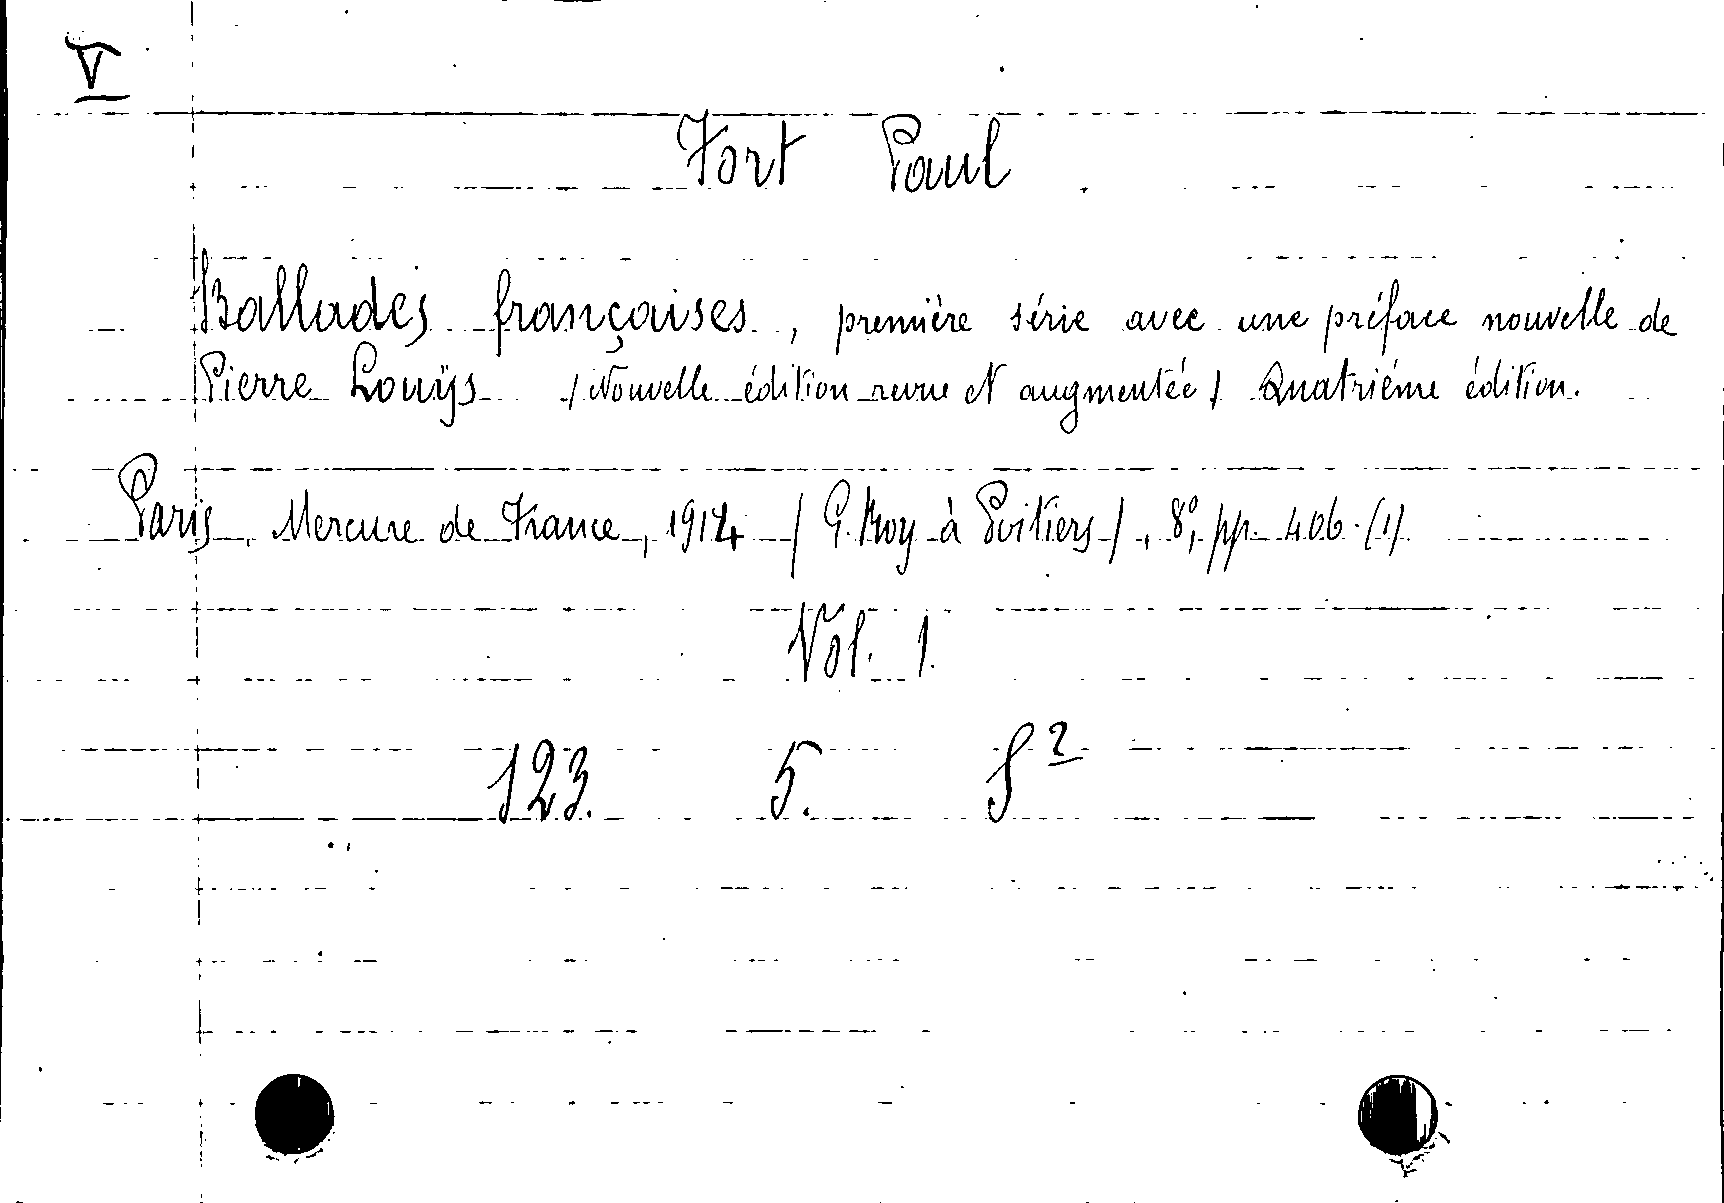 V
Fort Paul
Ballades françaises, première série avec une préface nouvelle de
Pierre Louÿs (Nouvelle édition revue et augmentée) Quatrième édition.
Paris, Mercure de France, 1914 (G. Roy à Poitiers), 8°, pp. 406. (1)
Vol. 1.
123. 5. S²